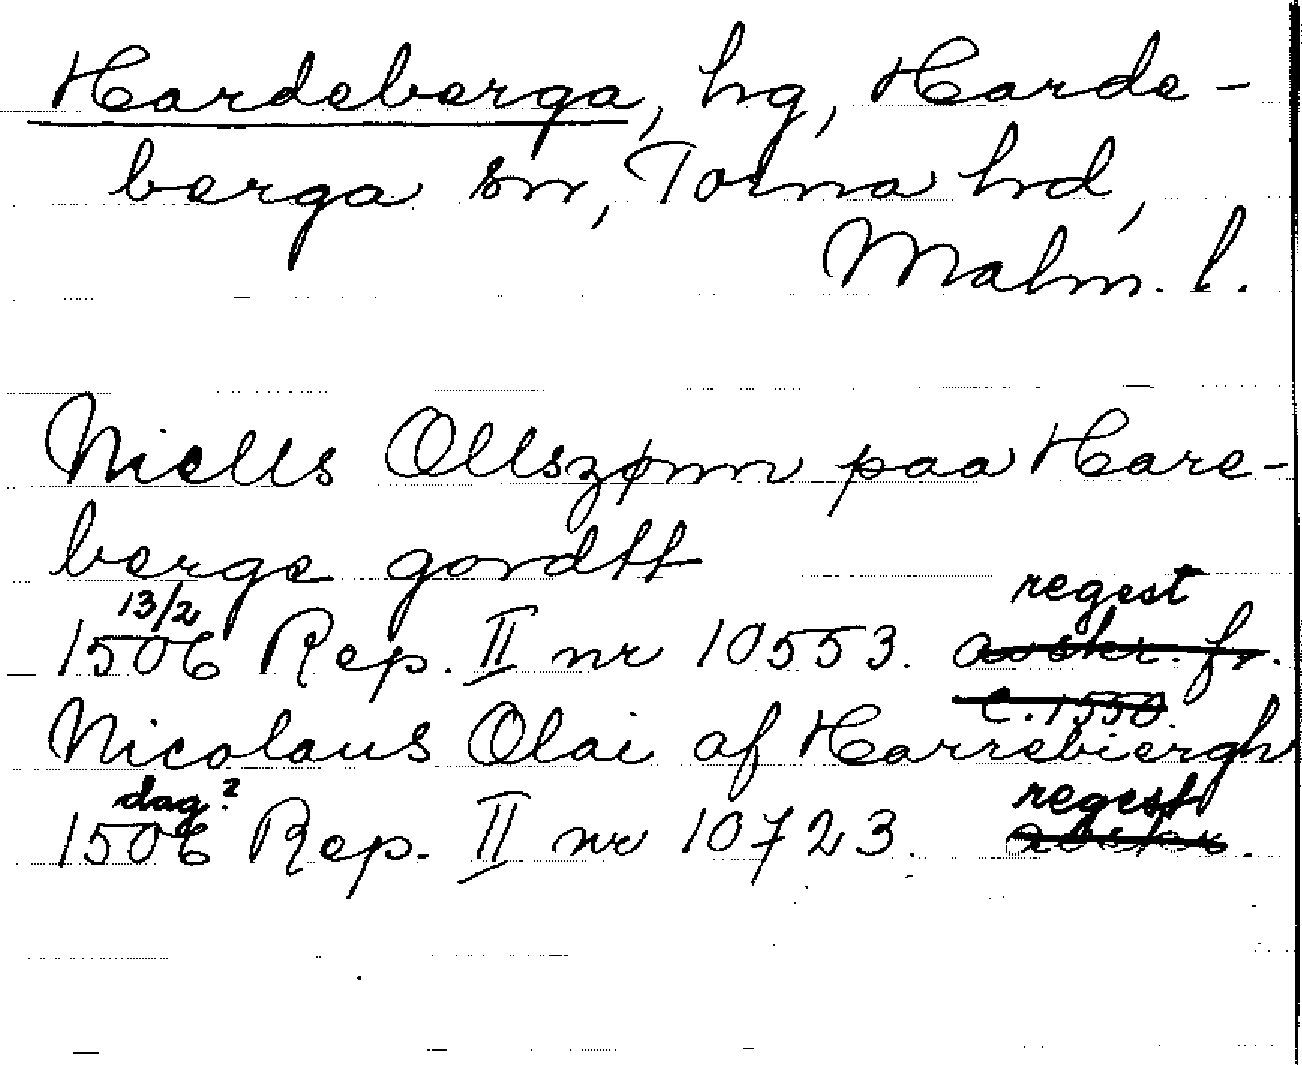 Hardeberga, hg, Harde-
berga sn, Torna hd,
Malm. l.
Niells Ollszønn paa Hare-
berge gordtt
13/2 regest
1506 Rep. II nr 10553. avskr. fr.
c. 1550.
Nicolaus Olai af Harrebiergh
dag? regest
1506 Rep. II nr 10723. avskr.